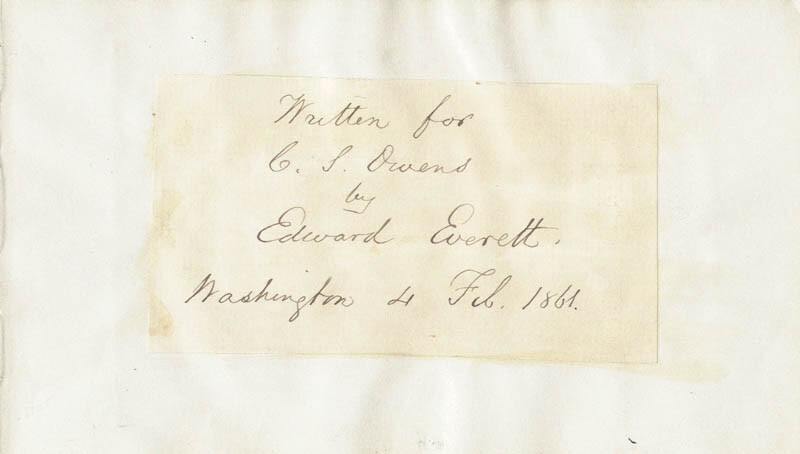 Written for
C. S. Owens
by
Edward Everett.
Washington 4 Feb. 1861.